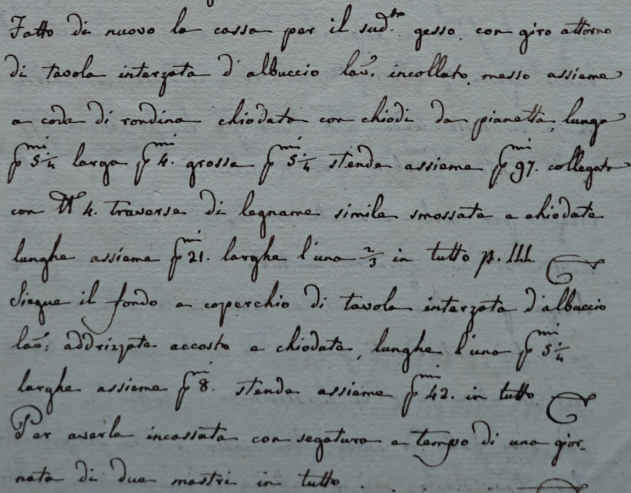 Fatto di nuovo la cassa per il sud.tto gesso, con giro attorno
di tavola interzata d'albuccio lav.ª incollato, messo assieme
a coda di rondina chiodata con chiodi da pianetta, lunga
p.mi 5¼ larga p.mi 4. grossa p.mi 5¼ stende assieme p.mi 97. collegata
con N 4. traverse di legname simile smossate e chiodate
lunghe assieme p.mi 21. larghe l'una ⅔ in tutto p. 111
Siegue il fondo e coperchio di tavola interzata d'albuccio
lav: addrizzate accosto e chiodate, lunghe l'una p.mi 5¼
larghe assieme p.mi 8. stende assieme p.mi 42. in tutto
Per averla incassata con segatura e tempo di una gior-
nata di due mastri in tutto